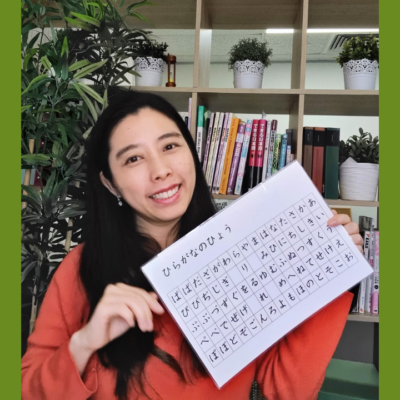 ひらがなのひょう
あいうえお
かきくけこ
さしすせそ
たちつてと
なにぬねの
はひふへほ
まみむめも
やゆよ
らりるれろ
わをん
がぎぐげご
ざじずぜぞ
だぢづでど
ばびぶべぼ
ぱぴぷぺぽ